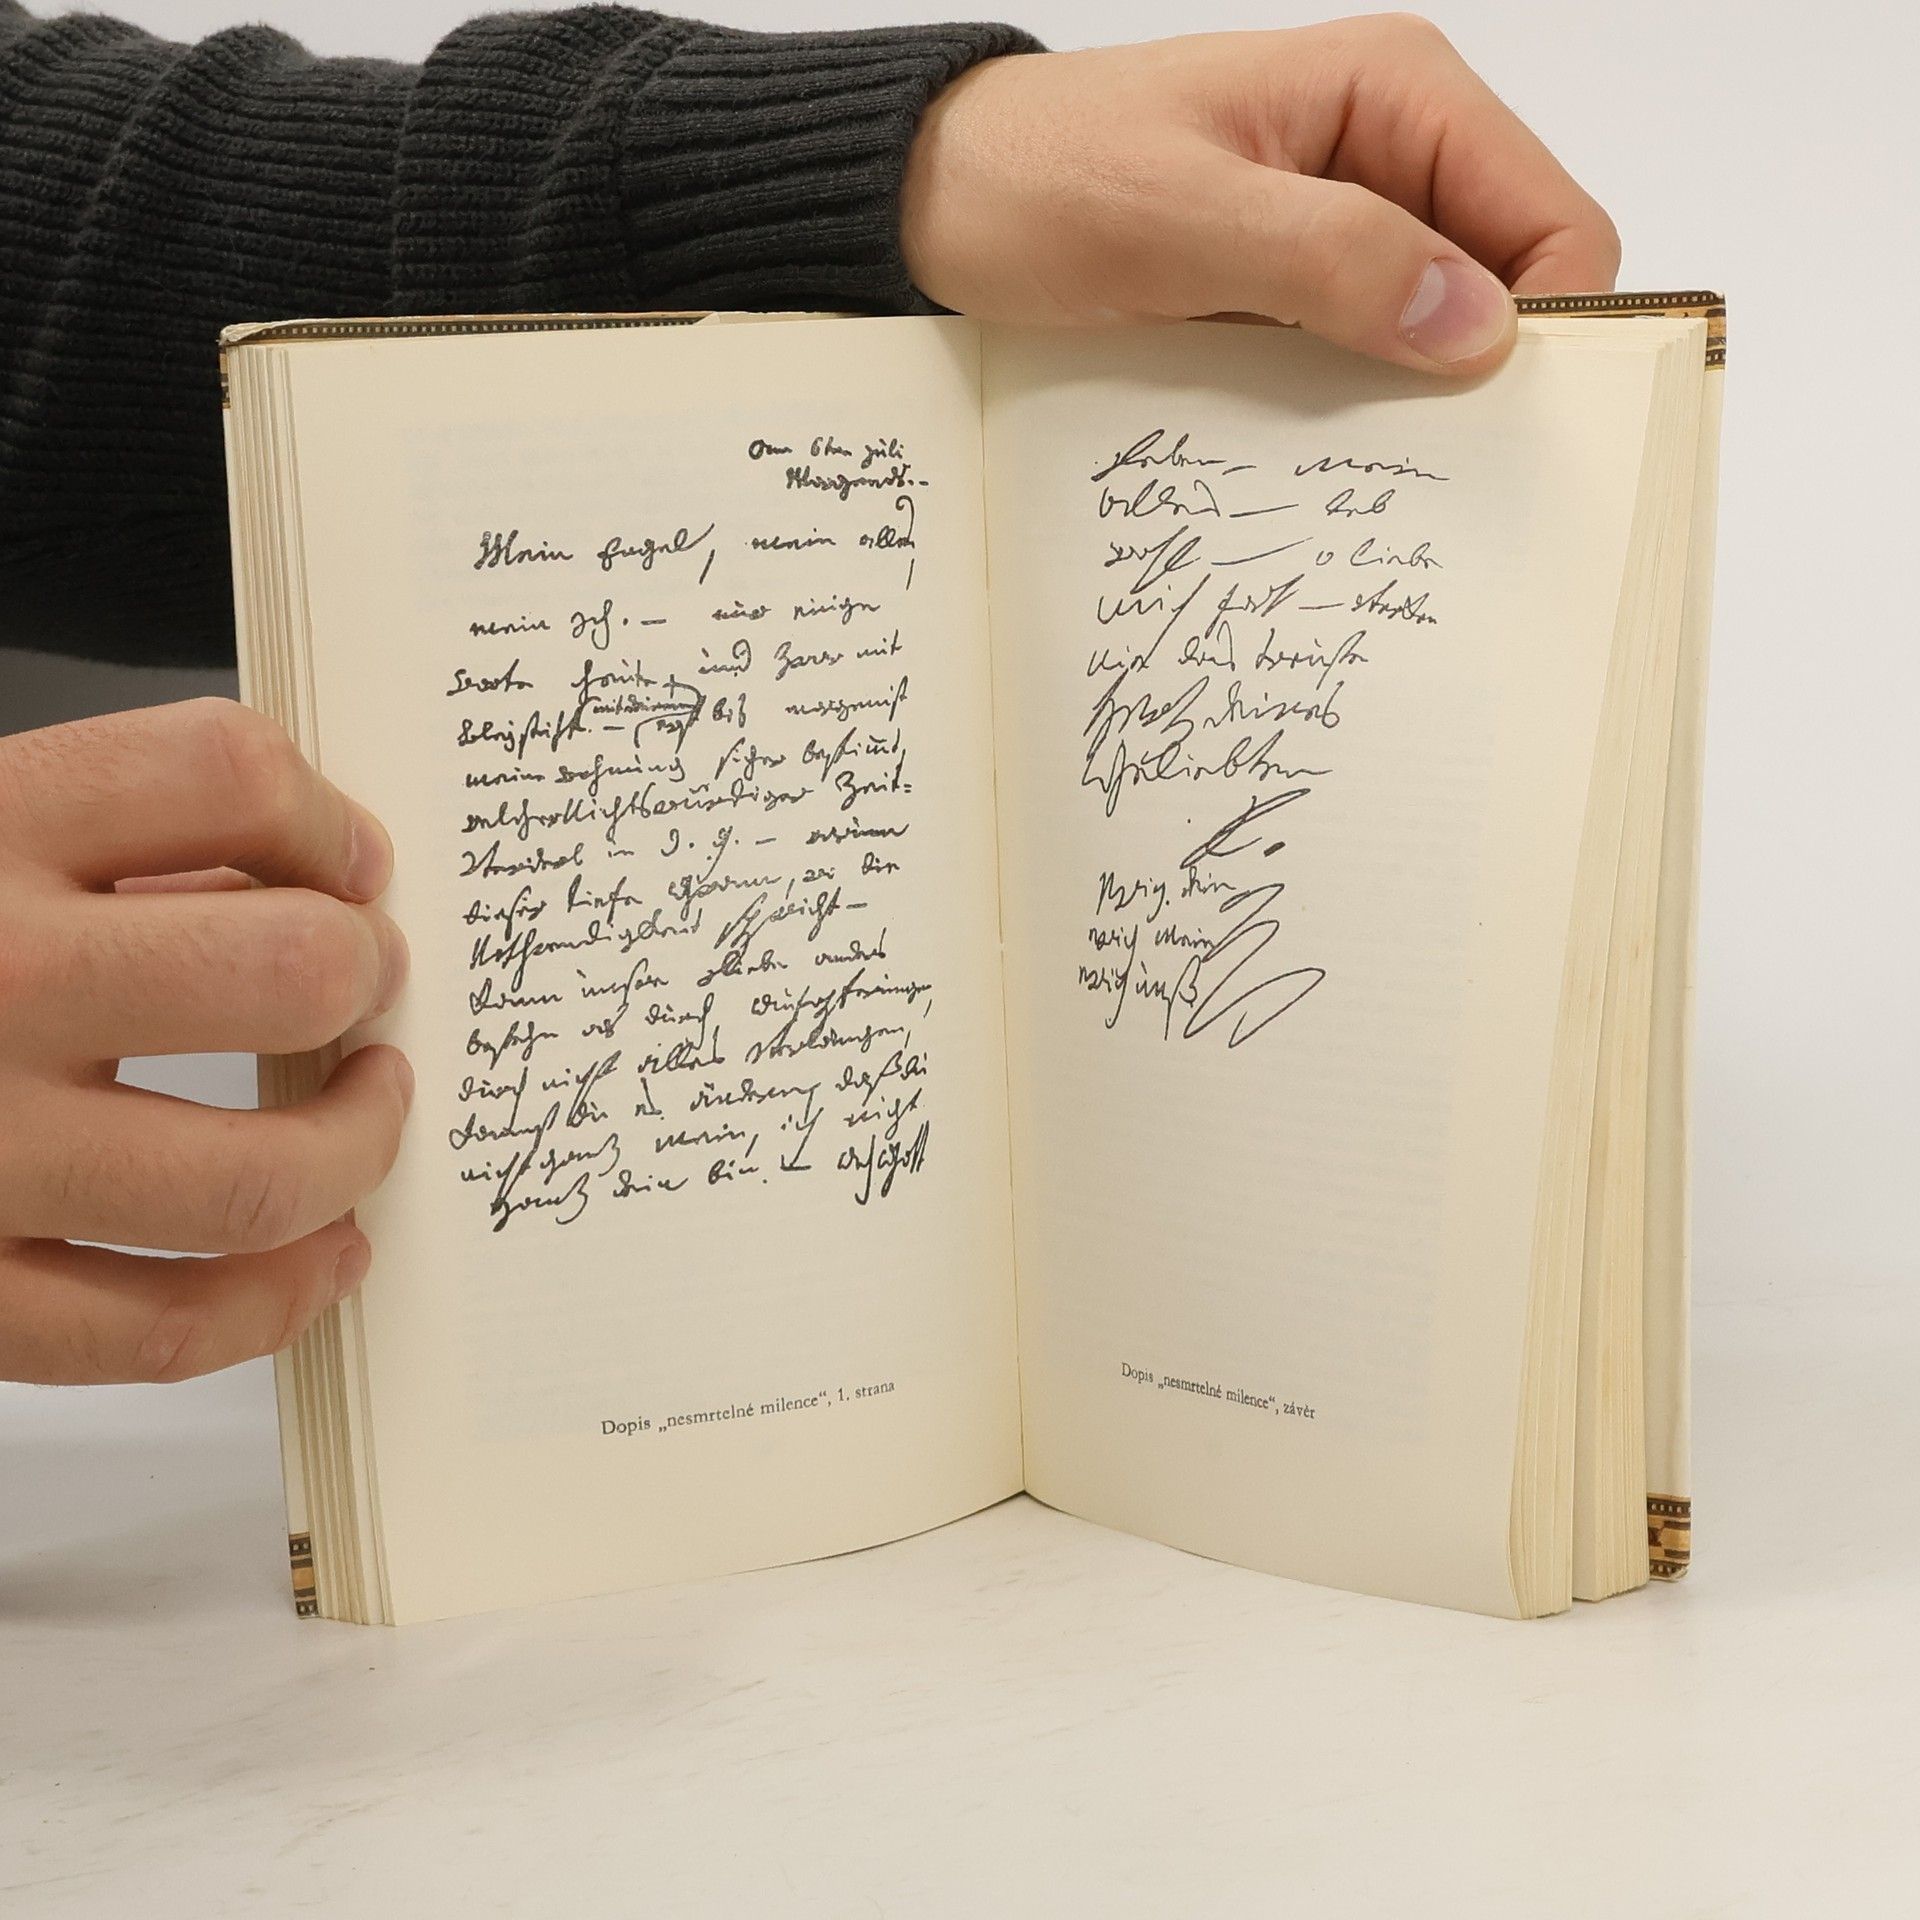 Am 6ten Juli
Morgends. –
Mein Engel, mein alles,
mein Ich. – nur einige
Worte heute, und zwar mit
Bleystift. – (mit deinem)
erst bis morgen ist
meine wohnung sicher bestimt,
welcher nichtswürdiger Zeit-
Verderb in d. g. – warum
dieser tiefe Gram, wo die
Nothwendigkeit spricht –
Kann unsre Liebe anders
bestehn als durch Aufopferungen,
durch nicht alles verlangen,
kannst du es ändern, daß du
nicht ganz mein, ich nicht
ganz dein bin. – Ach Gott
Leben – Mein
alles – leb
wohl – o liebe
mich fort – verken
nie das treuste
Herz deines
Geliebten
L.
ewig dein
ewig mein
ewig unß
Dopis „nesmrtelné milence“, 1. strana
Dopis „nesmrtelné milence“, závěr